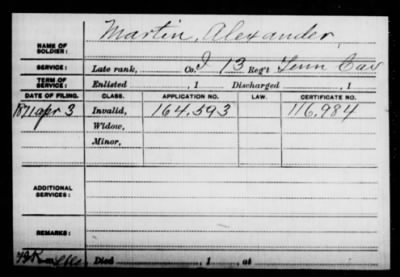 Martin, Alexander
NAME OF SOLDIER:
SERVICE: Late rank, Co. I 13 Reg't Tenn Cav
TERM OF SERVICE: Enlisted , 1 Discharged , 1
DATE OF FILING. CLASS. APPLICATION NO. LAW. CERTIFICATE NO.
1871 Apr 3 Invalid, 164,593 116,984
Widow,
Minor,
ADDITIONAL SERVICES:
REMARKS:
Died , 1 , at